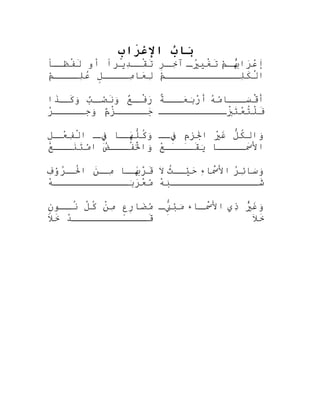 بَابُ الإِعْرَابِ
إِعْرَابُهُمْ تَغْيِيرُ آخِرِ تَقْدِيراً أو لَفْظاً
الْكَلِمْ لِعَامِلٍ عُلِمْ
أَقْسَامُهُ أَرْبَعَةٌ رَفْعٌ وَنَصْبٌ وَكَذَا
فَلْتُعْتَبَرْ جَزْمٌ وَجَرْ
وَالكُلُّ غَيْرَ الجَزْمِ فِي وَكُلُّهَا فِي الْفِعْلِ
الأَسْمَا يَقَعْ وَالخَفْضُ امْتَنَعْ
وَسَائِرُ الأَسْمَاءِ حَيْثُ لاَ قَرَّبَهَا مِنَ الْحُرُوفِ
شَبَهْ مُعْرَبَهْ
وَغَيْرُ ذِي الأَسْمَاء مَبْنِيٌّ مُضَارِعٍ مِنْ كُلِّ نُونٍ
خَلاَ قَدْ خَلاَ